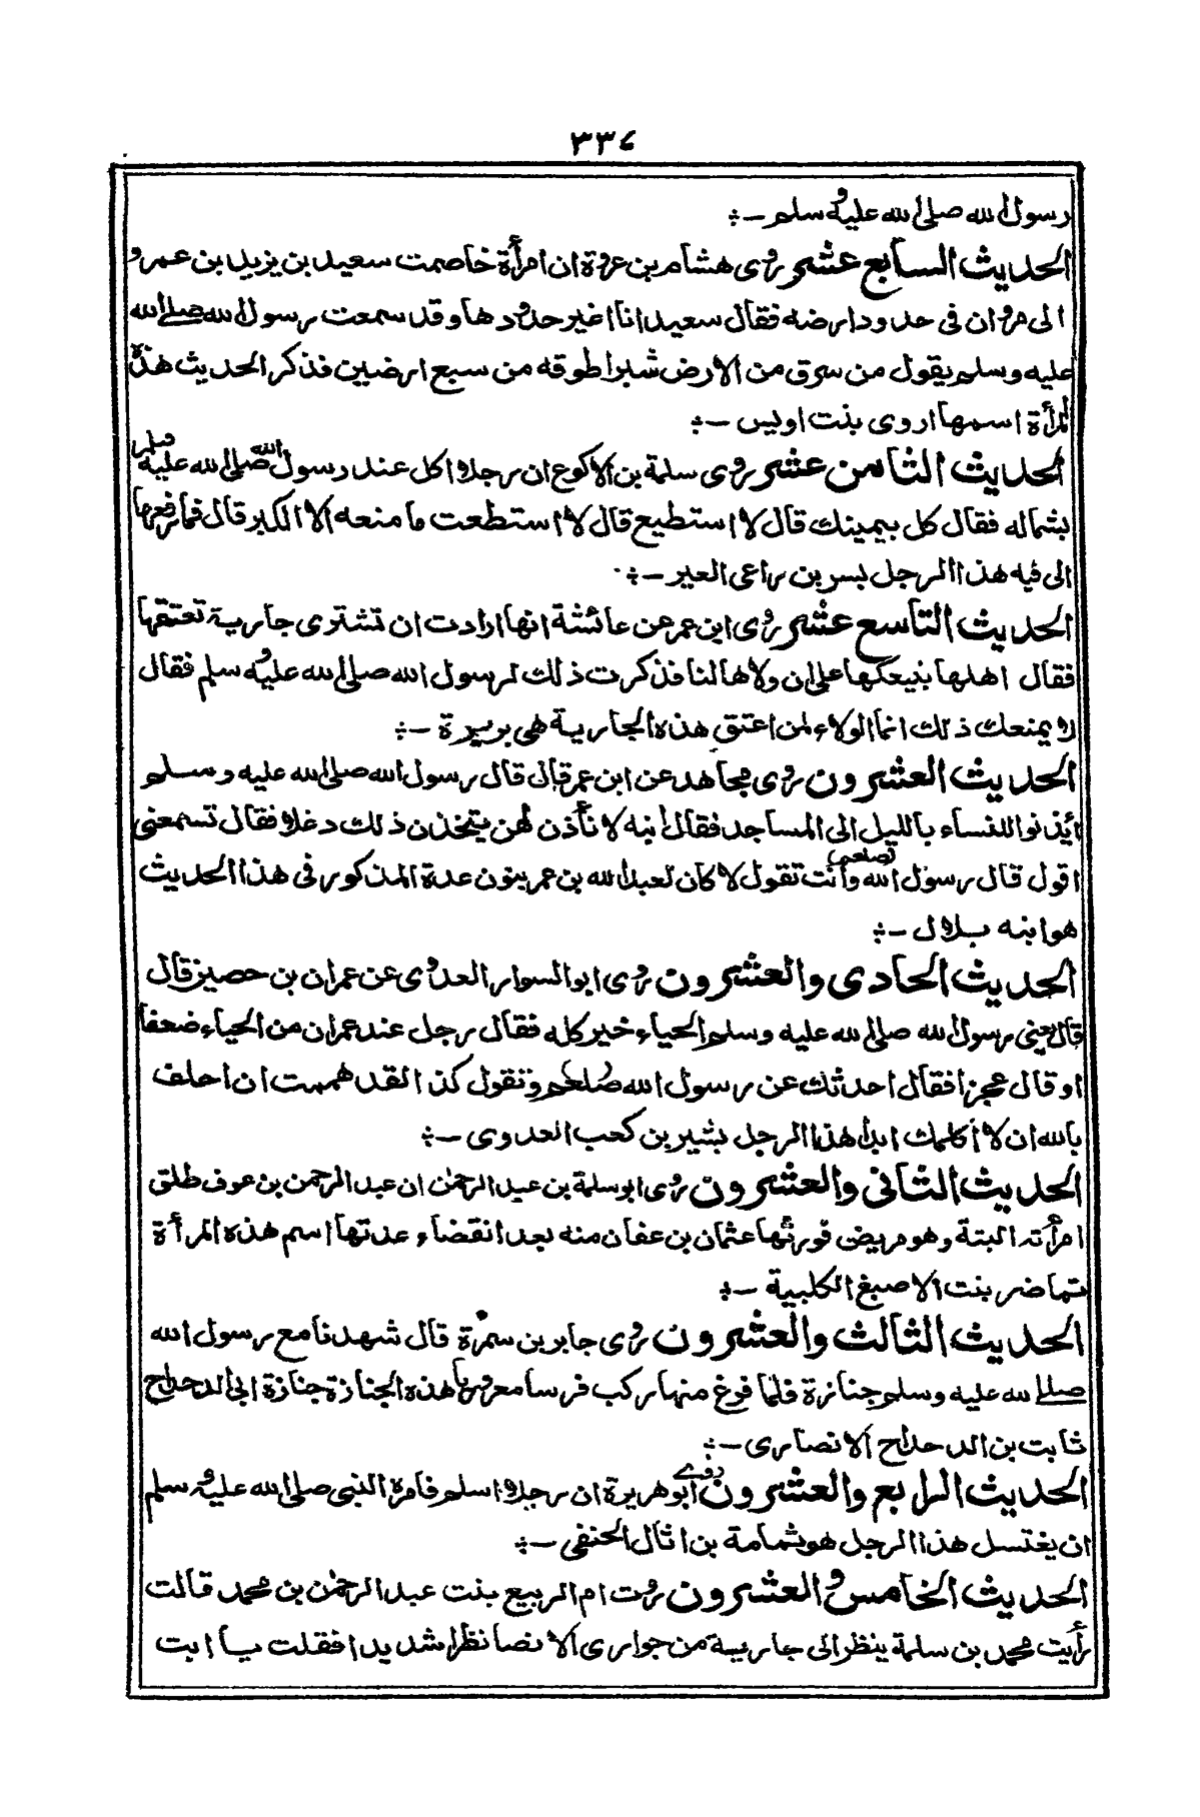 ٣٣٤
رسول الله صلى الله عليه وسلم -:
الحديث السابع عشر روى هشام بن عروة ان امرأة خاصمت سعيد بن يزيد بن عمرو
الى مروان فى حدود ارضه فقال سعيد انا اغير حدودها وقد سمعت رسول الله صلى الله
عليه وسلم يقول من سرق من الارض شبرا طوقه من سبع ارضين فذكر الحديث هذه
المرأة اسمها اروى بنت اويس -:
الحديث الثامن عشر روى سلمة بن الاكوع ان رجلا اكل عند رسول الله صلى الله عليه وسلم
بشماله فقال كل بيمينك قال لا استطيع قال لا استطعت ما منعه الا الكبر قال فما رفعها
الى فيه هذا الرجل بسر بن راعى العير -:
الحديث التاسع عشر روى ابن عمر عن عائشة انها ارادت ان تشترى جارية تعتقها
فقال اهلها نبيعكها على ان ولاها لنا فذكرت ذلك لرسول الله صلى الله عليه وسلم فقال
لا يمنعك ذلك انما الولاء لمن اعتق هذه الجارية هى بريرة -:
الحديث العشرون روى مجاهد عن ابن عمر قال قال رسول الله صلى الله عليه وسلم
ائيذنوا للنساء بالليل الى المساجد فقال ابنه لا نأذن لهن يتخذن ذلك دغلا فقال تسمعنى
اقول قال رسول الله صلعم وانت تقول لا كان لعبد الله بن عمر بنون عدة المذكور فى هذا الحديث
هو ابنه بلال -:
الحديث الحادى والعشرون روى ابو السوار العدوى عن عمران بن حصين قال
قال يعنى رسول الله صلى الله عليه وسلم الحياء خير كله فقال رجل عند عمران من الحياء ضعفا
او قال عجزا فقال احدثك عن رسول الله صلعم وتقول كذا لقد هممت ان احلف
بالله ان لا اكلمك ابدا هذا الرجل بشير بن كعب العدوى -:
الحديث الثانى والعشرون روى ابو سلمة بن عبد الرحمن ان عبد الرحمن بن عوف طلق
امرأته البتة وهو مريض فورثها عثمان بن عفان منه بعد انقضاء عدتها اسم هذه المرأة
تماضر بنت الاصبغ الكلبية -:
الحديث الثالث والعشرون روى جابر بن سمرة قال شهدنا مع رسول الله
صلى الله عليه وسلم جنازة فلما فرغ منها ركب فرسا معروريا هذه الجنازة جنازة ابى الدحداح
ثابت بن الدحداح الانصارى -:
الحديث الرابع والعشرون روى ابو هريرة ان رجلا اسلم فامره النبى صلى الله عليه وسلم
ان يغتسل هذا الرجل هو ثمامة بن اثال الحنفى -:
الحديث الخامس والعشرون روت ام الربيع بنت عبد الرحمن بن محمد قالت
رأيت محمد بن سلمة ينظر الى جارية من جوارى الانصا نظرا شديدا فقلت يا ابت